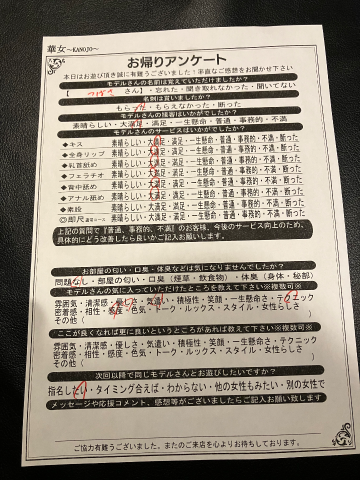 華女〜KANOJO〜
お帰りアンケート
本日はお遊び頂き誠に有難うございました!率直なご感想をお聞かせ下さい
モデルさんの名前は覚えていただけましたか?
さん・忘れた・聞き取れなかった・聞いてない
名刺は貰いましたか?
もらった・もらえなかった・断った
モデルさんの接客はいかがでしたか?
素晴らしい・大満足・満足・一生懸命・普通・事務的・不満
モデルさんのサービスはいかがでしたか?
◆キス 素晴らしい・大満足・満足・一生懸命・普通・事務的・不満・断った
◆全身リップ 素晴らしい・大満足・満足・一生懸命・普通・事務的・不満・断った
◆乳首舐め 素晴らしい・大満足・満足・一生懸命・普通・事務的・不満・断った
◆フェラチオ 素晴らしい・大満足・満足・一生懸命・普通・事務的・不満・断った
◆背中舐め 素晴らしい・大満足・満足・一生懸命・普通・事務的・不満・断った
◆アナル舐め 素晴らしい・大満足・満足・一生懸命・普通・事務的・不満・断った
◆素股 素晴らしい・大満足・満足・一生懸命・普通・事務的・不満・断った
◎即尺 素晴らしい・大満足・満足・一生懸命・普通・事務的・不満・断った
上記の質問で『普通、事務的、不満』のお客様、今後のサービス向上のため、
具体的にどう改善したら良いかご記入お願いします。
お部屋の匂い・口臭・体臭などは気になりませんでしたか?
問題なし・部屋の匂い・口臭(煙草・飲食物)・体臭(身体・秘部)
モデルさんの気に入っていただけたところを教えて下さい※複数可※
雰囲気・清潔感・優しさ・気遣い・積極性・笑顔・一生懸命さ・テクニック
密着感・相性・感度・色気・トーク・ルックス・スタイル・女性らしさ
その他( )
ここが良くなれば更に良いというところがあれば教えて下さい※複数可※
雰囲気・清潔感・優しさ・気遣い・積極性・笑顔・一生懸命さ・テクニック
密着感・相性・感度・色気・トーク・ルックス・スタイル・女性らしさ
その他( )
次回以降で同じモデルさんとお遊びしたいですか?
指名したい・タイミング合えば・わからない・他の女性もみたい・別の女性で
メッセージや応援コメント、感想等がございましたらご記入お願い致します
ご協力有難うございました。またのご来店を心よりお待ちしております。